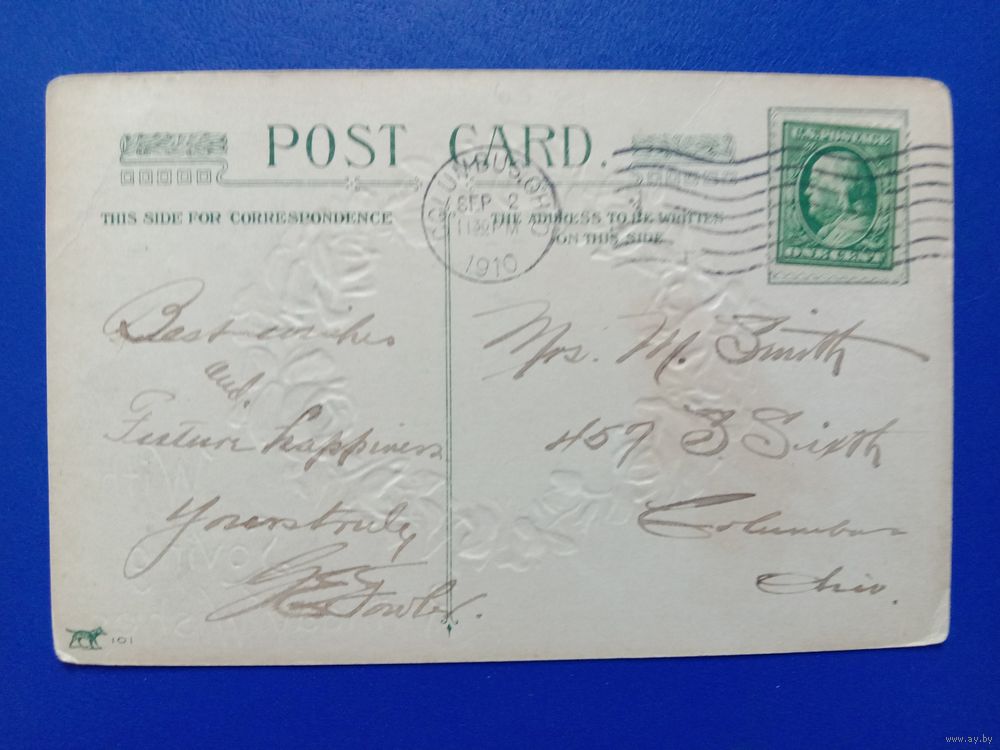 POST CARD.
THIS SIDE FOR CORRESPONDENCE
THE ADDRESS TO BE WRITTEN
ON THIS SIDE
COLUMBUS, OHIO
SEP 2
1130 PM
1910
U.S. POSTAGE
ONE CENT
Best wishes
and.
Future happiness
Yours truly
Fowler.
Mrs. M. Smith
457 S Sixth
Columbus
Ohio.
With
101
www.ay.by